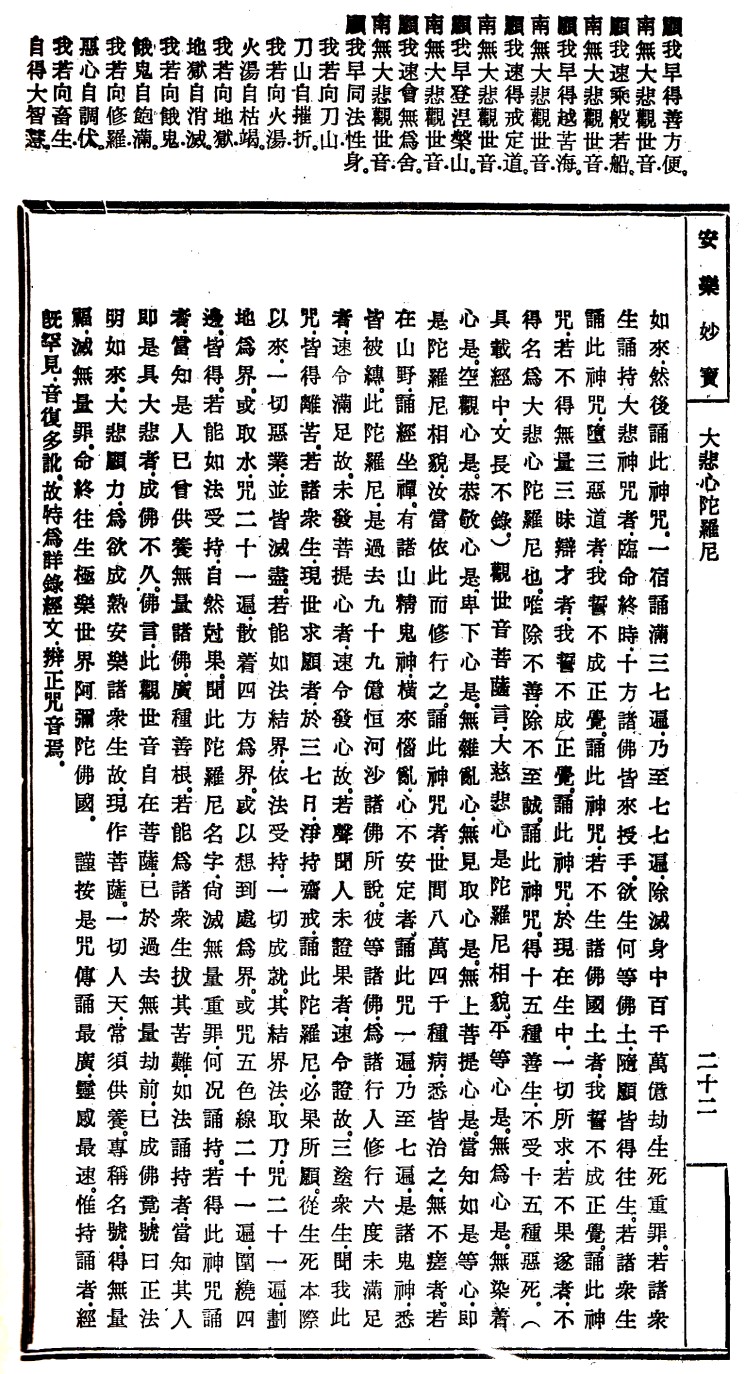 願我早得善方便。
南無大悲觀世音.
願我速乘般若船。
南無大悲觀世音.
願我早得越苦海。
南無大悲觀世音.
願我速得戒定道。
南無大悲觀世音.
願我早登涅槃山。
南無大悲觀世音.
願我速會無爲舍。
南無大悲觀世音.
願我早同法性身。
我若向刀山.
刀山自摧折。
我若向火湯.
火湯自枯竭。
我若向地獄.
地獄自消滅。
我若向餓鬼.
餓鬼自飽滿。
我若向修羅.
惡心自調伏。
我若向畜生.
自得大智慧。
安樂妙寶 大悲心陀羅尼 二十二
如來.然後誦此神咒。一宿誦滿三七遍.乃至七七遍.除滅身中百千萬億劫生死重罪。若諸衆
生誦持大悲神咒者.臨命終時.十方諸佛皆來授手.欲生何等佛土.隨願皆得往生。若諸衆生
誦此神咒.墮三惡道者.我誓不成正覺。誦此神咒.若不生諸佛國土者.我誓不成正覺。誦此神
咒若不得無量三昧辯才者.我誓不成正覺。誦此神咒.於現在生中.一切所求.若不果遂者.不
得名爲大悲心陀羅尼也。唯除不善.除不至誠。誦此神咒.得十五種善生.不受十五種惡死。（
具載經中.文長不錄。）觀世音菩薩言.大慈悲心是陀羅尼相貌。平等心是。無爲心是。無染着
心是。空觀心是。恭敬心是.卑下心是。無雜亂心.無見取心是。無上菩提心是。當知如是等心.即
是陀羅尼相貌.汝當依此而修行之。誦此神咒者.世間八萬四千種病.悉皆治之.無不瘥者。若
在山野.誦經坐禪。有諸山精鬼神.橫來惱亂.心不安定者.誦此咒一遍.乃至七遍.是諸鬼神.悉
皆被縛。此陀羅尼.是過去九十九億恒河沙諸佛所說。彼等諸佛.爲諸行人修行六度未滿足
者.速令滿足故。未發菩提心者.速令發心故。若聲聞人未證果者.速令證故。三塗衆生.聞我此
咒.皆得離苦。若諸衆生.現世求願者.於三七日.淨持齋戒.誦此陀羅尼.必果所願。從生死本際
以來.一切惡業.並皆滅盡。若能如法結界.依法受持.一切成就。其結界法.取刀.咒二十一遍.劃
地爲界。或取水.咒二十一遍.散着四方爲界。或以想到處爲界。或咒五色線二十一遍.圍繞四
邊.皆得。若能如法受持.自然尅果。聞此陀羅尼名字.尙滅無量重罪.何况誦持。若得此神咒誦
者.當知是人已曾供養無量諸佛.廣種善根。若能爲諸衆生拔其苦難.如法誦持者.當知其人
即是具大悲者.成佛不久。佛言.此觀世音自在菩薩.已於過去無量劫前.已成佛竟.號曰正法
明如來.大悲願力.爲欲成熟安樂諸衆生故.現作菩薩。一切人天.常須供養。專稱名號.得無量
福.滅無量罪。命終往生極樂世界阿彌陀佛國。　謹按是咒傳誦最廣.靈感最速。惟持誦者.經
旣罕見.音復多訛。故特爲詳錄經文.辨正咒音焉。